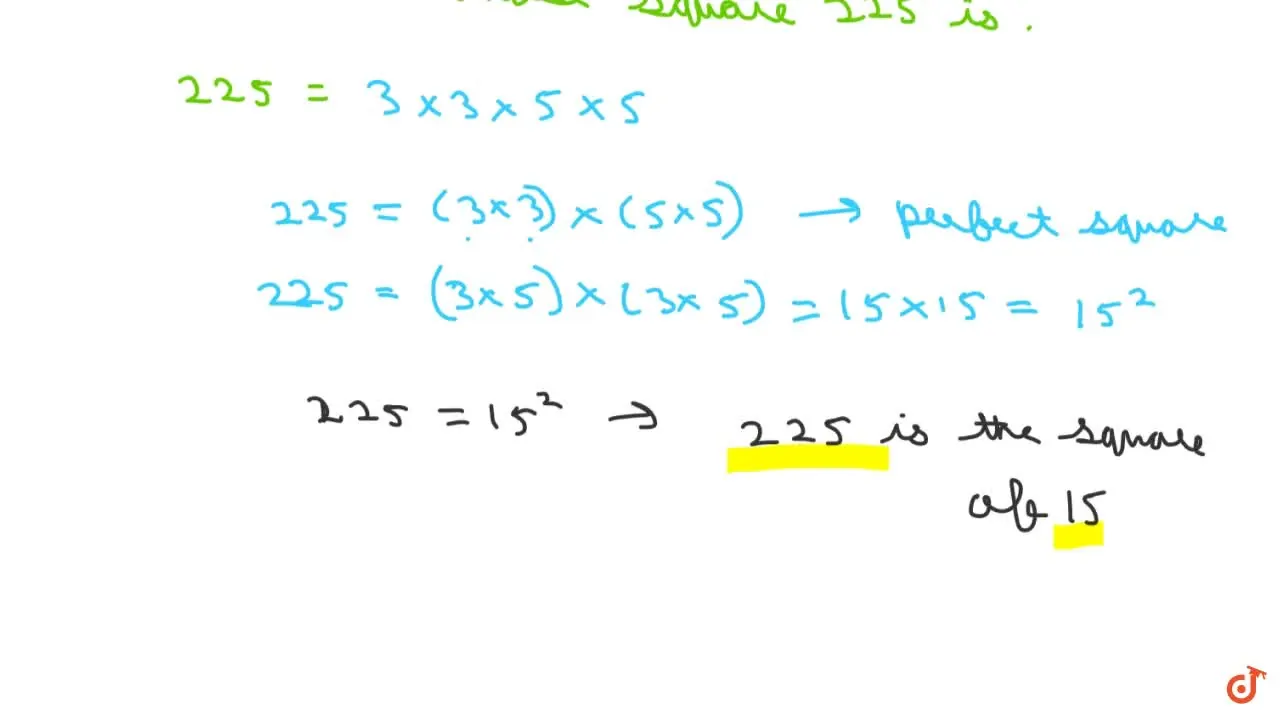 square 225 is.
225 = 3 × 3 × 5 × 5
225 = (3×3) × (5×5) → perfect square
225 = (3×5) × (3×5) = 15×15 = 15²
225 = 15² → 225 is the square
of 15